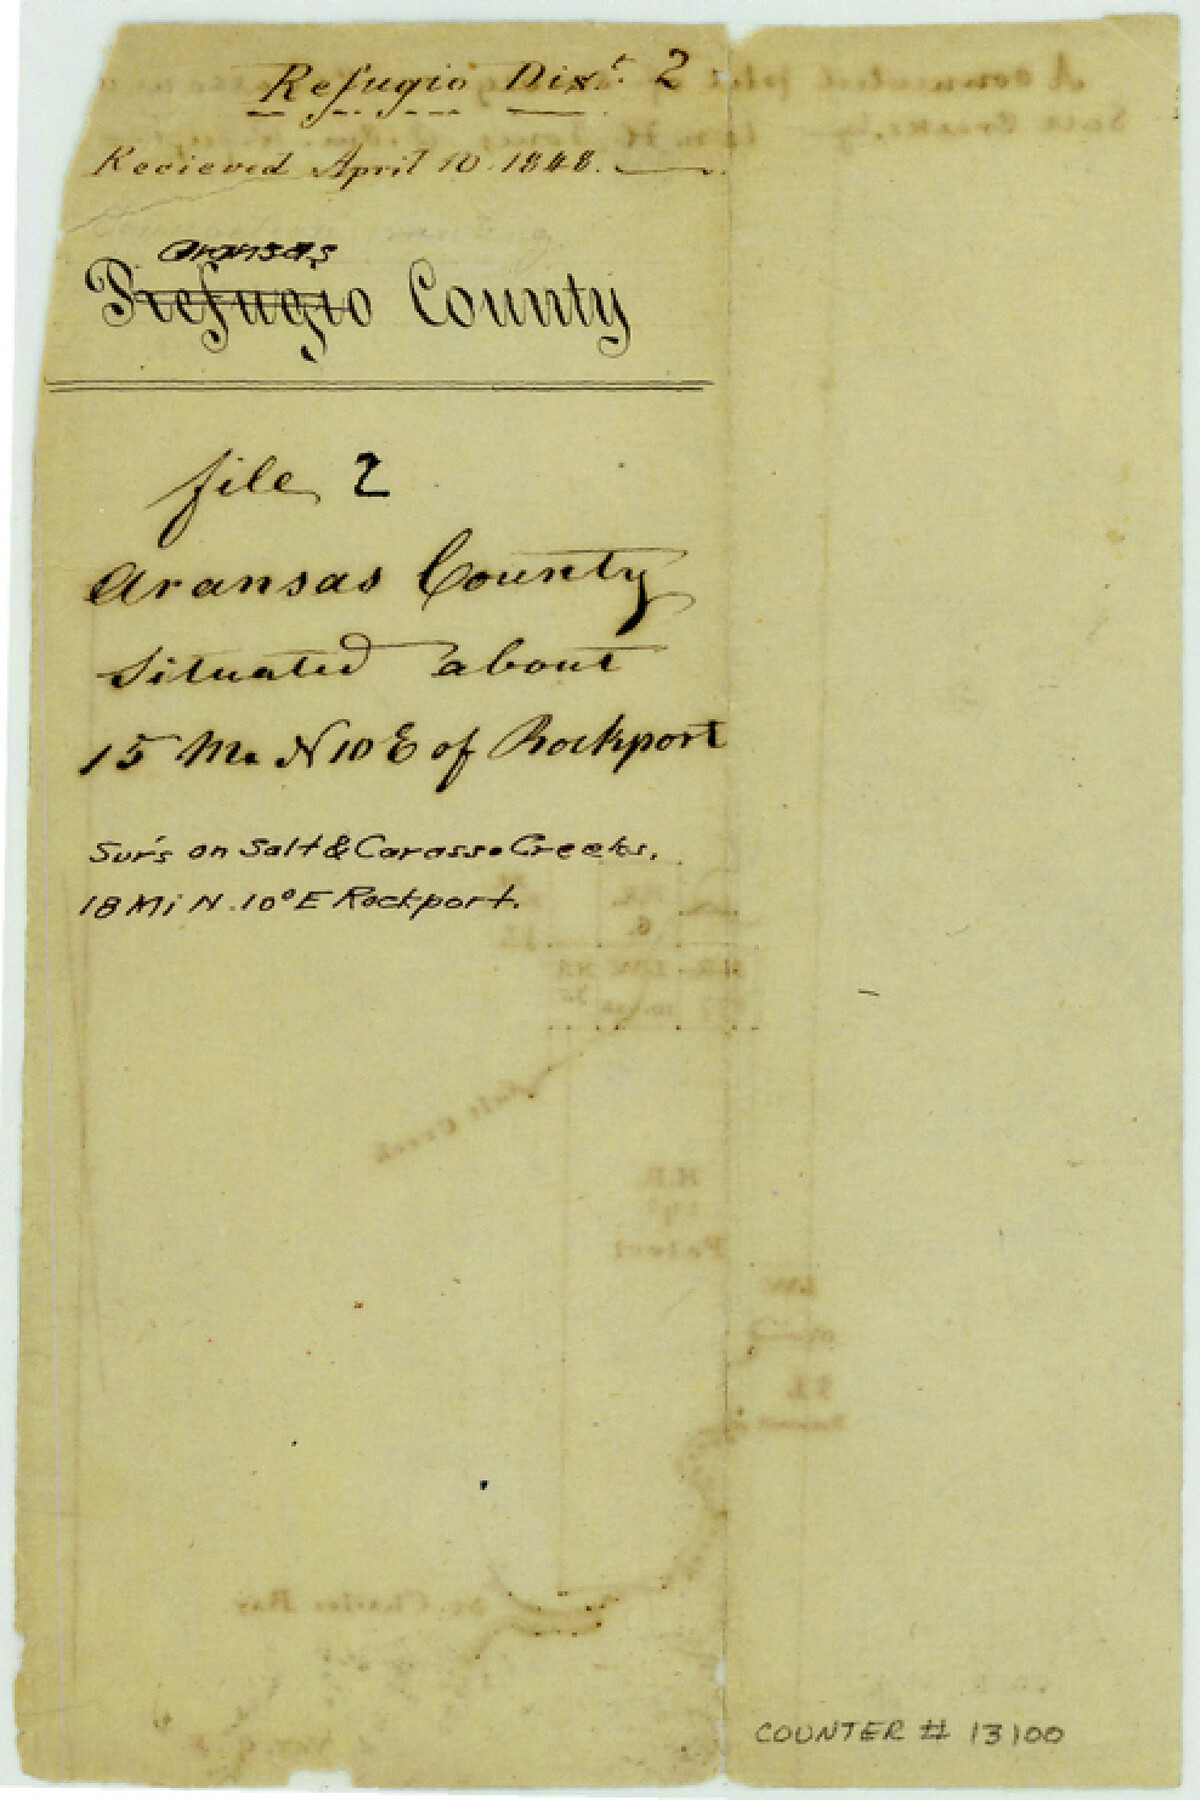 Refugio Dist. 2
Recieved April 10. 1848.
Aransas
Refugio County
file 2
Aransas County
Situated about
15 Mi N 10 E of Rockport
Sur's on Salt & Carasso Creeks,
18 Mi N. 10° E Rockport.
Salt Creek
H.R.
Patent
St. Charles Bay
COUNTER # 13100